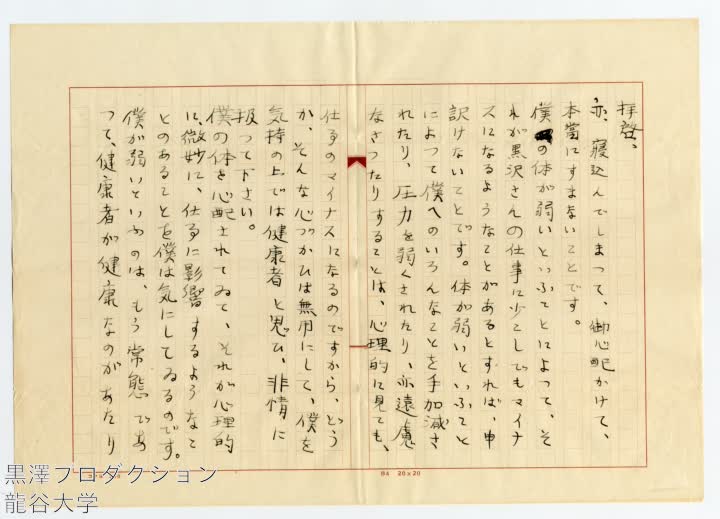 拝啓、
亦、寝込んでしまつて、御心配かけて、
本當にすまないことです。
僕の体が弱いといふことによつて、そ
れが黒沢さんの仕事に少こしでもマイナ
スになるようなことがあるとすれば、申
訳けないことです。体が弱いといふこと
によつて僕へのいろんなことを手加減さ
れたり、圧力を弱くされたり、亦遠慮
なさつたりすることは、心理的に見ても、
仕事のマイナスになるのですから、どう
か、そんな心づかひは無用にして、僕を
気持の上では健康者と思ひ、非情に
扱つて下さい。
僕の体を心配されてゐて、それが心理的
に、微妙に、仕事に影響するようなこ
とのあることを僕は気にしてゐるのです。
僕が弱いといふのは、もう常態であ
つて、健康者が健康なのがあたり
B4 20×20
黒澤プロダクション
龍谷大学